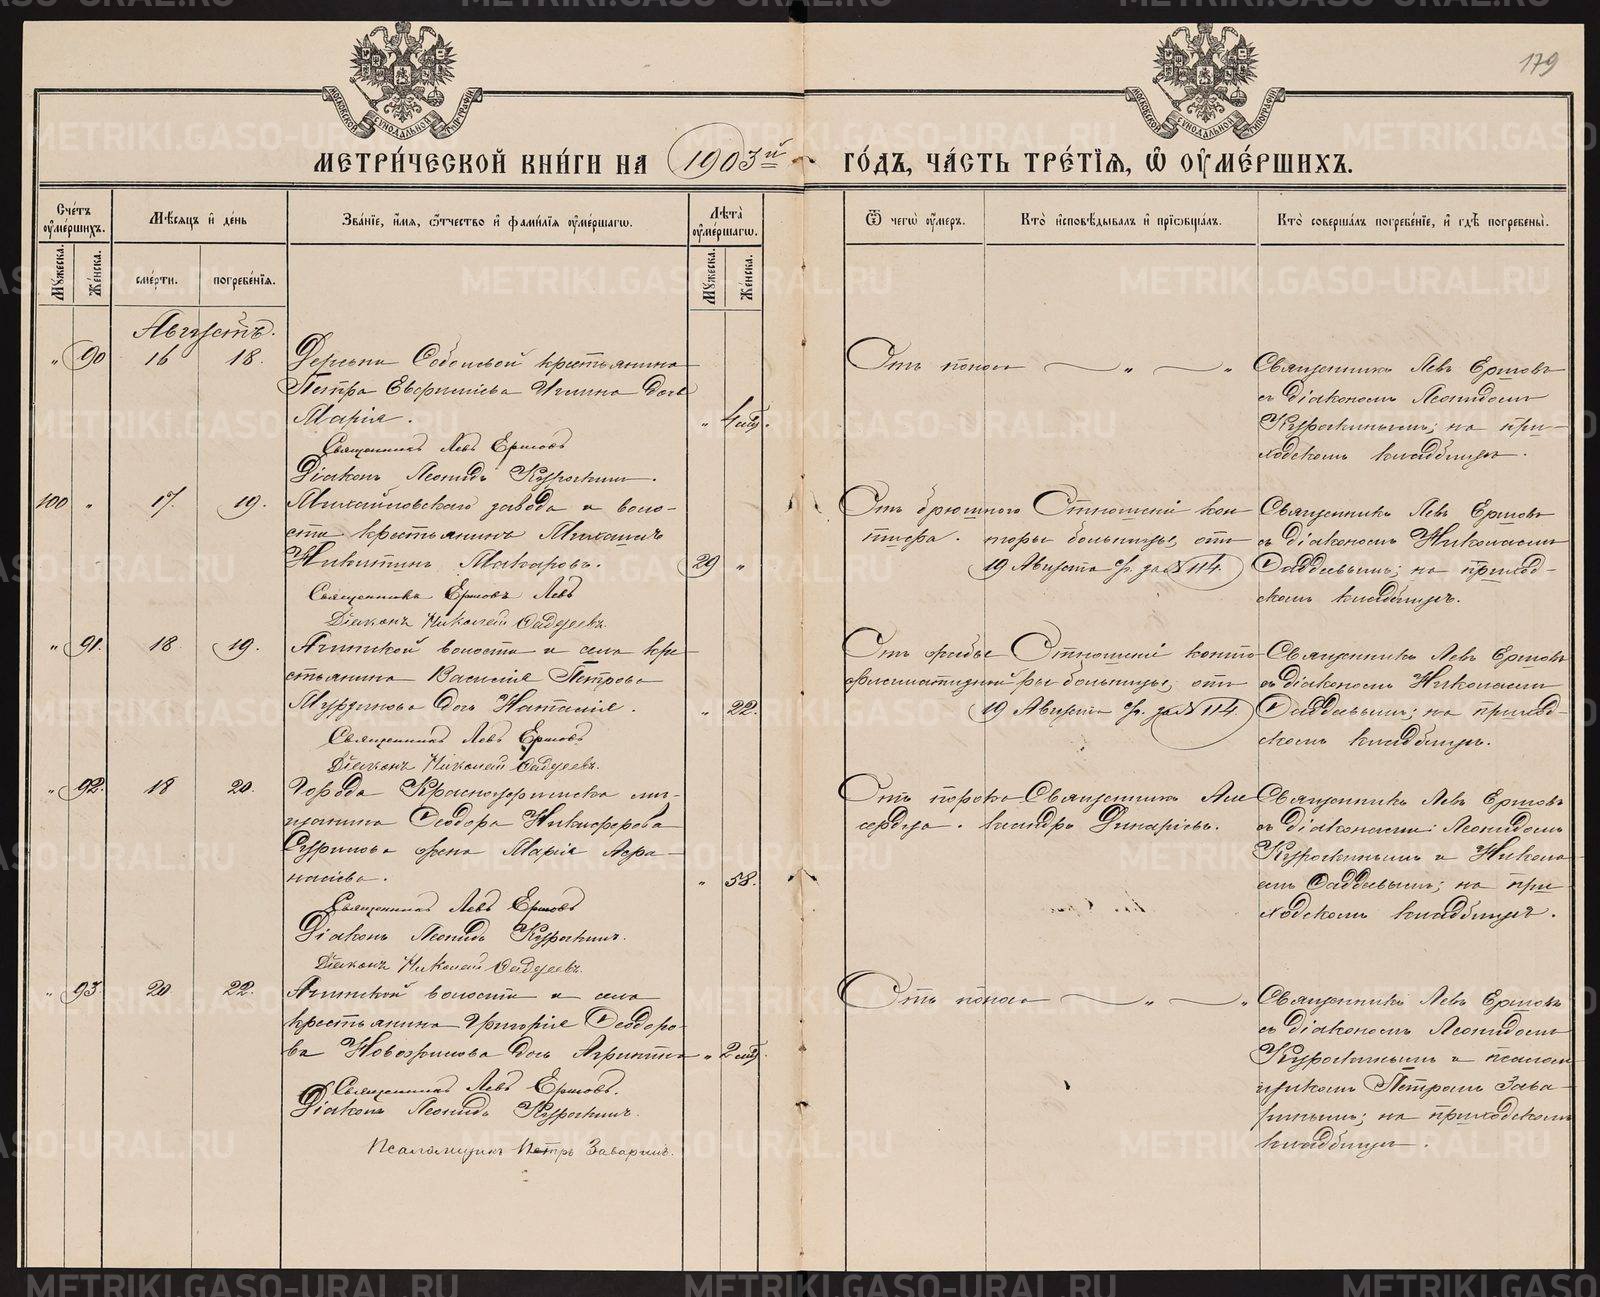 179
МОСКОВСКОЙ СѴНОДАЛЬНОЙ ТИПОГРАФІИ
МОСКОВСКОЙ СѴНОДАЛЬНОЙ ТИПОГРАФІИ
МЕТРИ́ЧЕСКОЙ КНИ́ГИ НА 1903й ГО́ДЪ, ЧА́СТЬ ТРЕ́ТІѦ, Ѽ ОУМЕ́РШИХЪ.
Сче́тъ оумершихъ.
Мꙋжеска.
Же́нска.
Мѣсяцъ и де́нь
сме́рти.
погребе́нія.
Зва́ніе, и́мя, ѻтчество и фами́лія оуме́ршагѡ.
Лѣта̀ оуме́ршагѡ.
Мꙋжеска.
Же́нска.
Ѿ чегѡ̀ оу́меръ.
Кто̀ исповѣ́дывалъ и пріѡбща́лъ.
Кто̀ соверша́лъ погребе́ніе, и гдѣ̀ погребены̀.
Августъ.
„ 90 16 18. Деревни Соболевой крестьянина
Петра Евгениева Илина дочь
Марія. „ 4 мѣс.
Священникъ Левъ Ершовъ
Діаконъ Леонидъ Курочкинъ.
Отъ поноса „ „
Священникъ Левъ Ершовъ
съ діакономъ Леонидомъ
Курочкинымъ; на при-
ходскомъ кладбищѣ.
100 „ 17. 19. Михайловскаго завода и воло-
сти крестьянинъ Михаилъ
Никитинъ Макаровъ. 29 „
Священникъ Ершовъ Левъ
Діаконъ Николай Фаддеевъ.
Отъ брюшного
тифа.
Отношеніе кон-
торы больницы, отъ
19 Августа с/г. за № 114.
Священникъ Левъ Ершовъ
съ діакономъ Николаемъ
Фаддеевымъ; на приход-
скомъ кладбищѣ.
„ 91. 18. 19. Ачитской волости и села кре-
стьянина Василія Петрова
дочь Наталія. „ 22.
Священникъ Левъ Ершовъ
Діаконъ Николай Фаддеевъ.
Отношеніе конто-
ры больницы, отъ
19 Августа с/г. за № 114.
Священникъ Левъ Ершовъ
съ діакономъ Николаемъ
Фаддеевымъ; на приход-
скомъ кладбищѣ.
„ 92. 18 20. Города Красноуфимска мѣ-
щанина Ѳеодора Никифорова
жена Марія Аѳа-
насіева. „ 58.
Священникъ Левъ Ершовъ
Діаконъ Леонидъ Курочкинъ.
Діаконъ Николай Фаддеевъ.
Отъ порока
сердца.
Священникъ Але-
ксандръ Динаріевъ.
Священникъ Левъ Ершовъ
съ діаконами: Леонидомъ
Курочкинымъ и Никола-
емъ Фаддеевымъ; на при-
ходскомъ кладбищѣ.
„ 93. 20 22. Ачитской волости и села
крестьянина Григорія Ѳеодоро-
ва Новоселова дочь Агриппина „ 2 мѣс.
Священникъ Левъ Ершовъ.
Діаконъ Леонидъ Курочкинъ.
Псаломщикъ Петръ Заваринъ.
Отъ поноса „ „
Священникъ Левъ Ершовъ
съ діакономъ Леонидомъ
Курочкинымъ и псалом-
щикомъ Петромъ Зава-
ринымъ; на приходскомъ
кладбищѣ.
METRIKI.GASO-URAL.RU